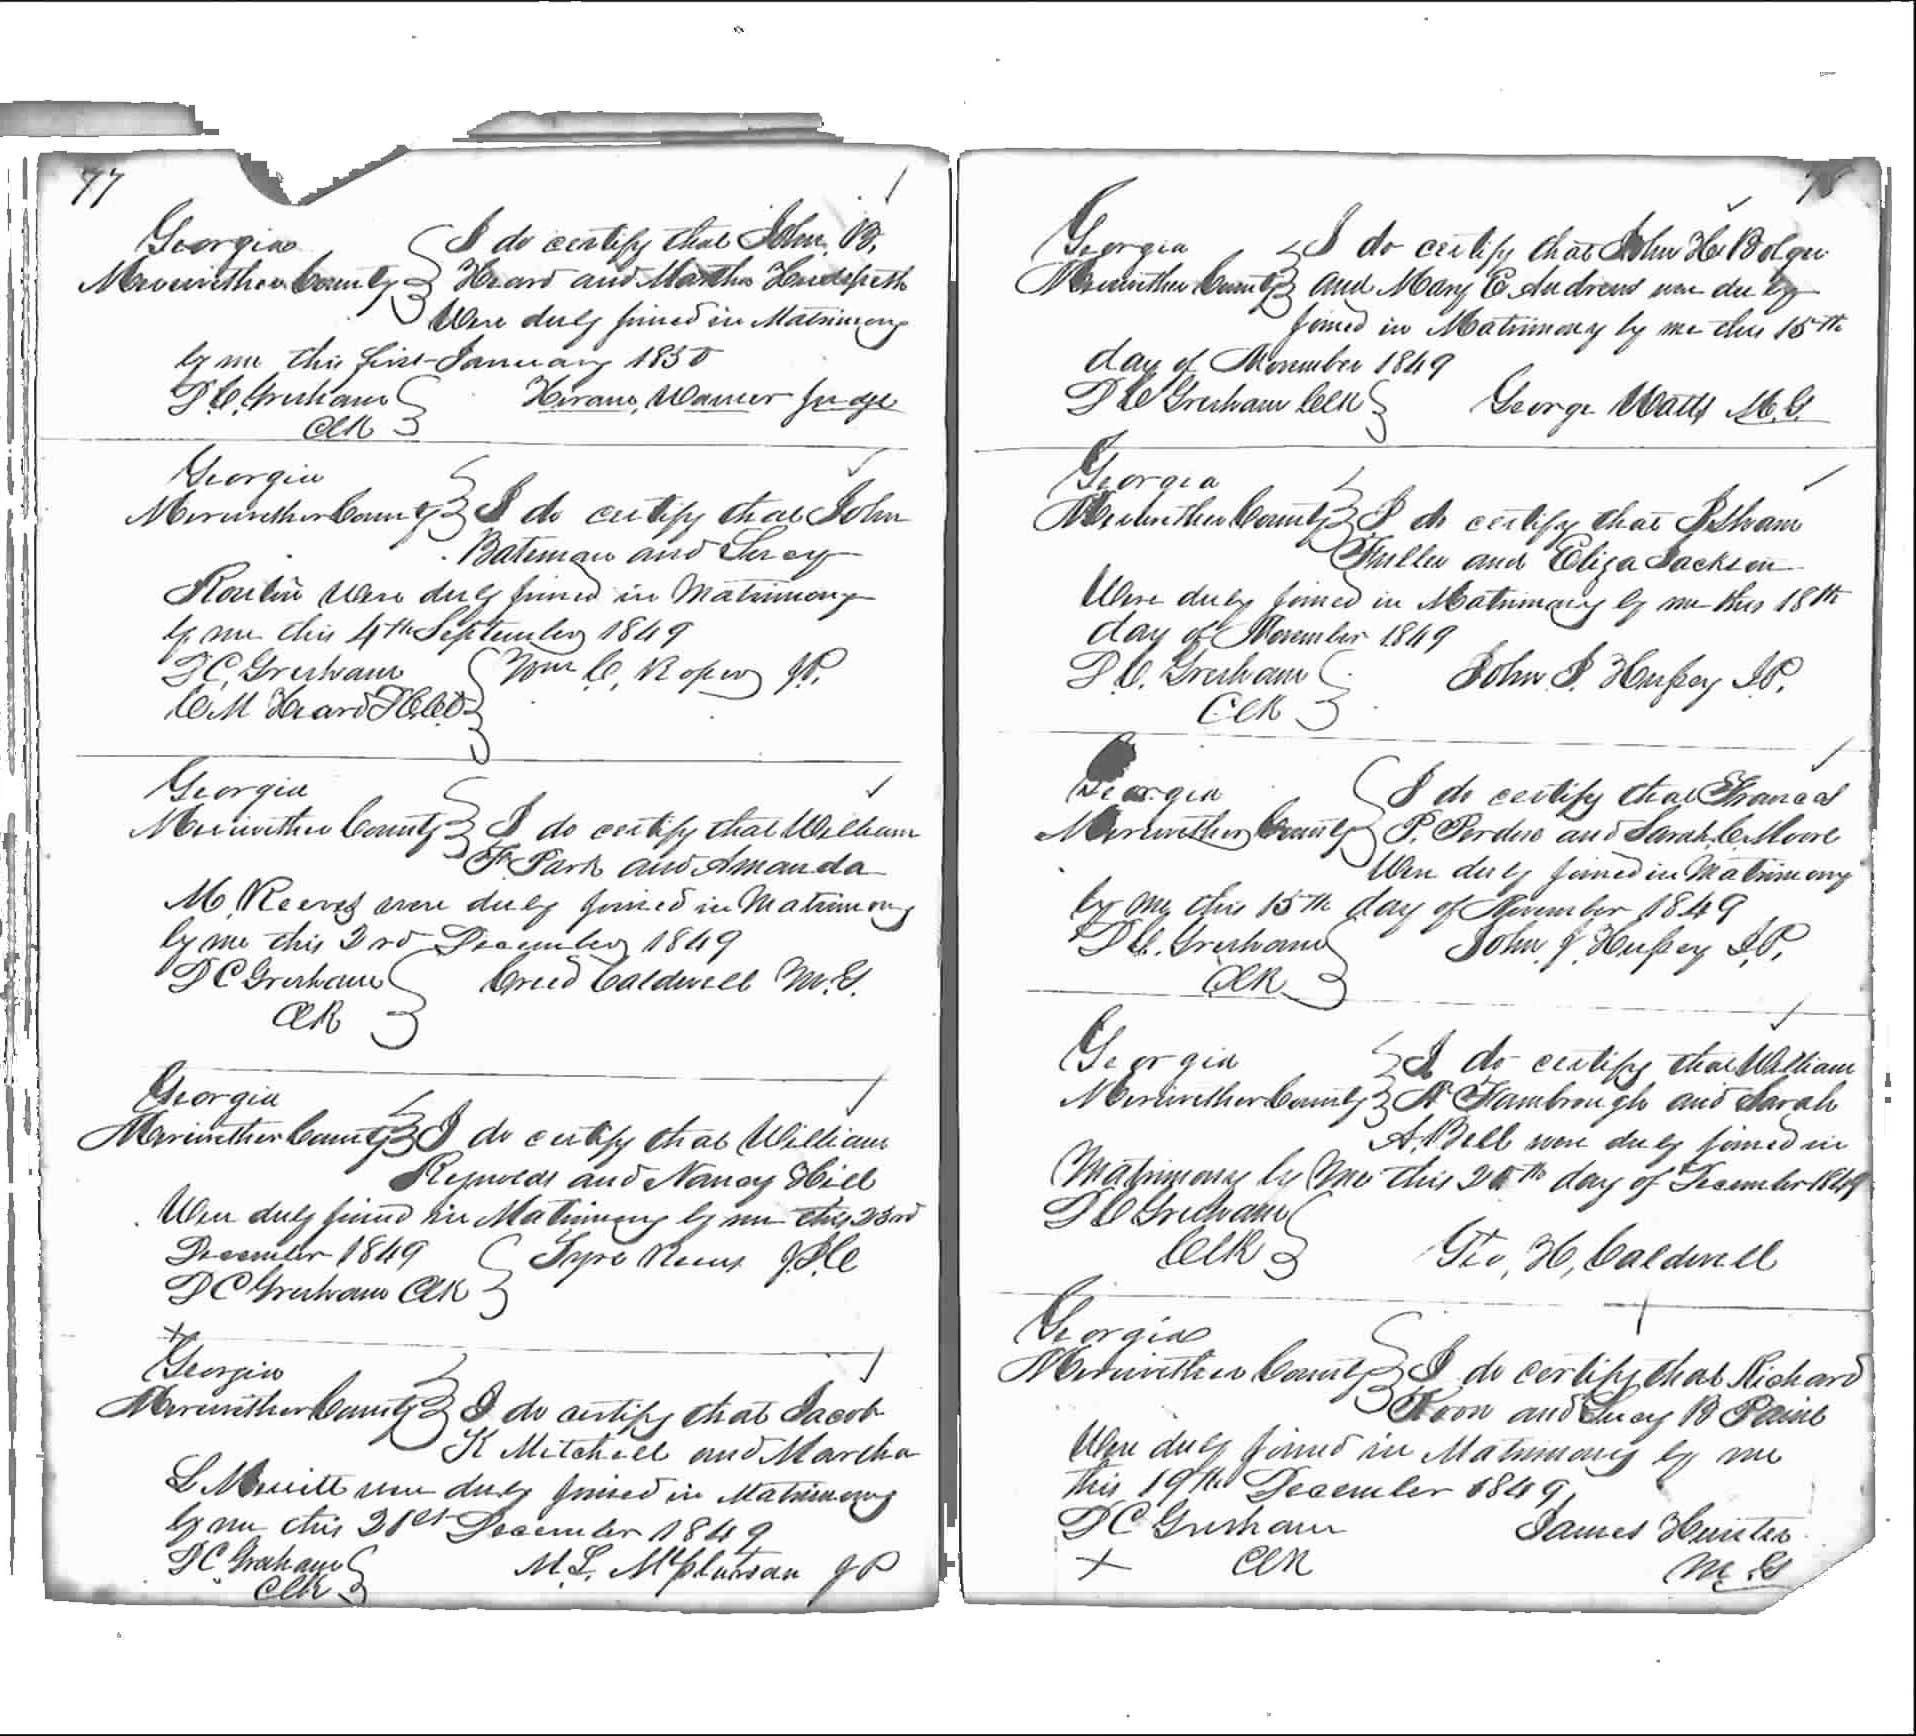 77
Georgia
Meriwether County I do certify that John B.
Heard and Martha Hudspeth
Were duly joined in Matrimony
by me this first January 1850
D C. Gresham Hiram Warner Judge
Clk
Georgia
Meriwether County I do certify that John
Bateman and Lucy
were duly joined in Matrimony
by me this 4th September 1849
D C. Gresham Wm C. Roper JP.
C M Heard
Georgia
Meriwether County I do certify that William
F. Park and Amanda
M. Reeves were duly joined in Matrimony
by me this 23rd December 1849
D C Gresham Creed Caldwell M.G.
Clk
Georgia
Meriwether County I do certify that William
Reynolds and Nancy Hill
Were duly joined in Matrimony by me this 23rd
December 1849 Tyre Reeves J.I.C
D C Gresham Clk
X
Georgia
Meriwether County I do certify that Jacob
K Mitchell and Martha
L Merritt were duly joined in Matrimony
by me this 21st December 1849
D C. Gresham M. L. McPherson JP
Clk
78
Georgia I do certify that John H. Bolger
Meriwether County and Mary E Andrews were duly
joined in Matrimony by me this 15th
day of November 1849
D C Gresham Clk George Watts M.G.
Georgia
Meriwether County I do certify that Isham
Fuller and Eliza Jackson
Were duly joined in Matrimony by me this 18th
day of November 1849
D C. Gresham John J. Hussey J.P.
Clk
Georgia I do certify that Francis
Meriwether County P. Perdue and Sarah C. Moore
Were duly joined in Matrimony
by me this 15th day of November 1849
D C. Gresham John J. Hussey J.P.
Clk
Georgia I do certify that William
Meriwether County A Stambrough and Sarah
A. Bell were duly joined in
Matrimony by me this 20th day of December 1849
D C Gresham
Clk Geo, H, Caldwell
Georgia
Meriwether County I do certify that Richard
Koon and Lucy B Paine
Were duly joined in Matrimony by me
this 19th December 1849,
D C Gresham James Hunter
X Clk M.G